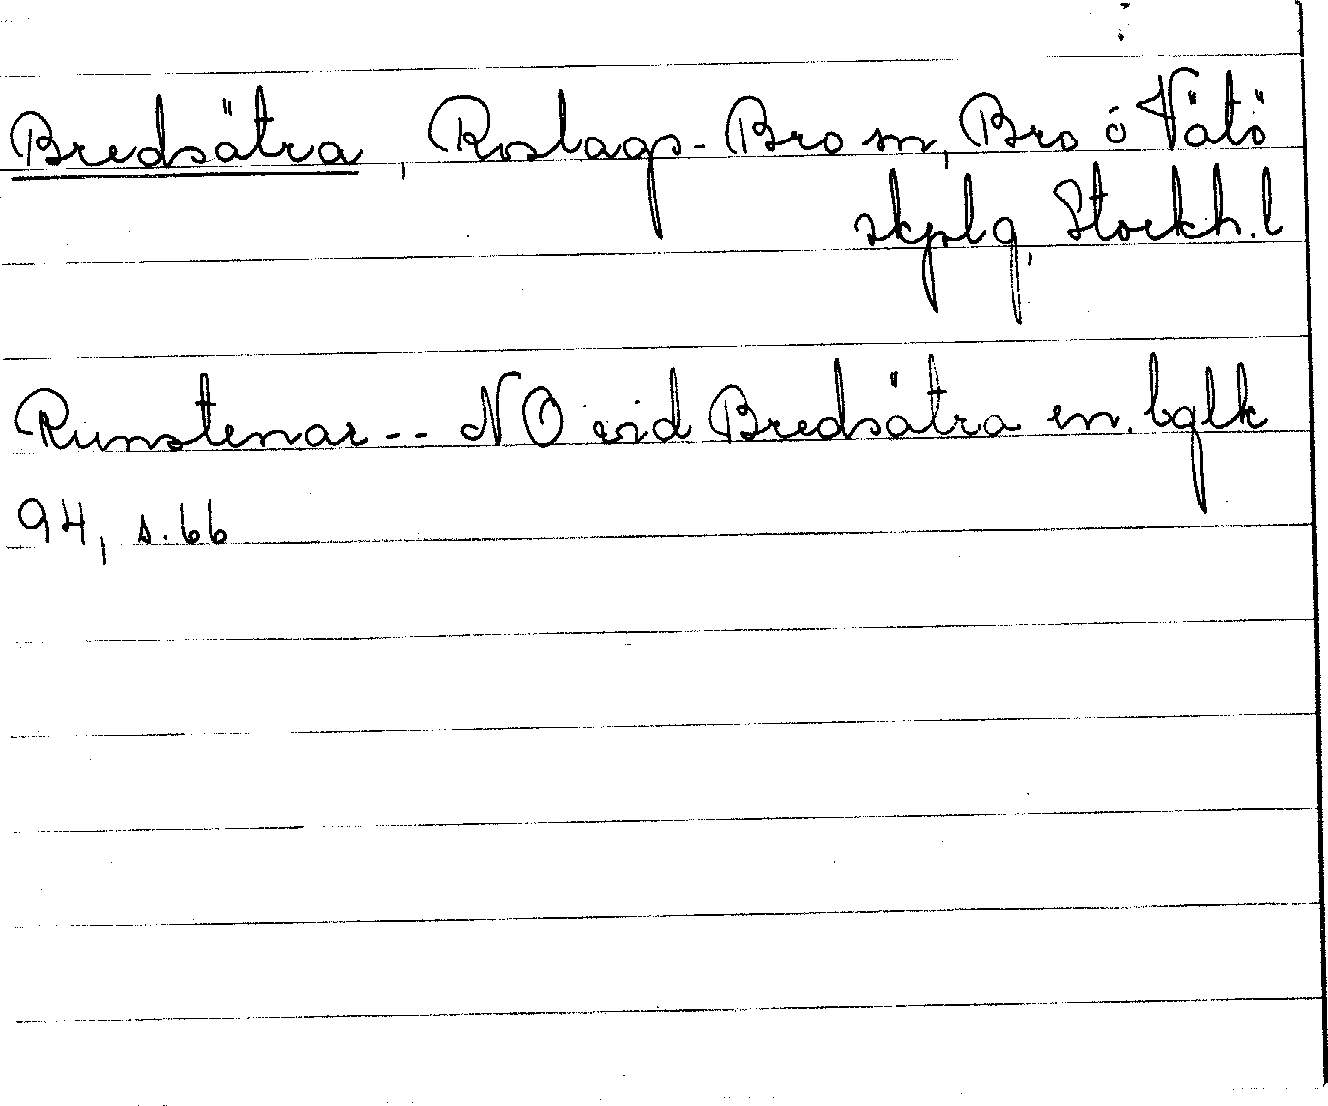 Bredsätra, Roslags-Bro sn, Bro ó Vätö
skplg, Stockh. l
Runstenar -- NO vid Bredsätra en. bglk
94, s. 66